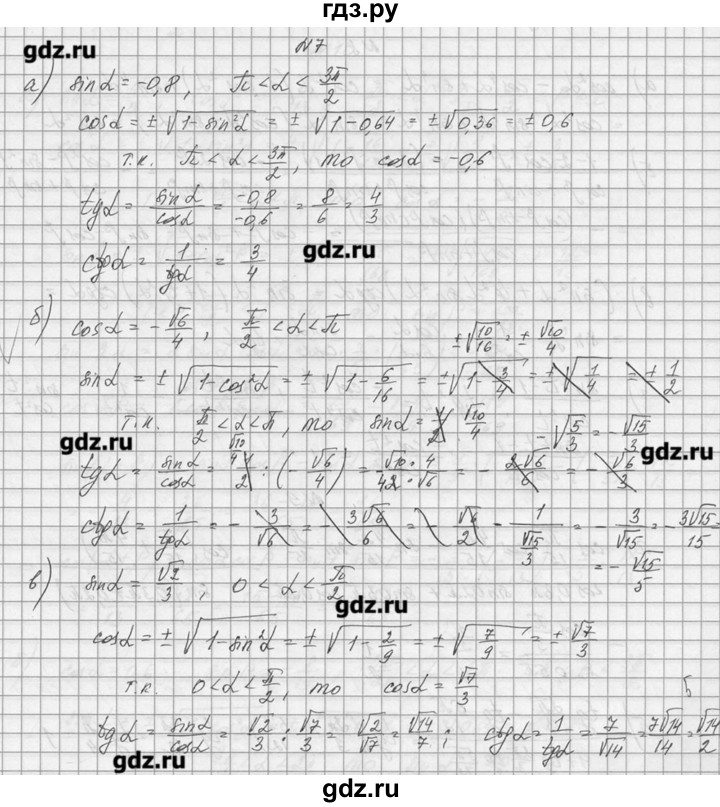 гдз.ру
gdz.ru
№7
а) sinα = -0,8, π < α < 3π/2
cosα = ±√(1-sin²α) = ±√(1-0,64) = ±√0,36 = ±0,6
т.к. π < α < 3π/2, то cosα = -0,6
tgα = sinα/cosα = -0,8/-0,6 = 8/6 = 4/3
gdz.ru
ctgα = 1/tgα = 3/4
б) cosα = -√6/4, π/2 < α < π
±√(10/16) = ±√10/4
sinα = ±√(1-cos²α) = ±√(1-6/16) = ±√(1-3/4) = ±√(1/4) = ±1/2
т.к. π/2 < α < π, то sinα = 1/2 √10/4
-√(5/3) = -√15/3
gdz.ru
gdz.ru
tgα = sinα/cosα = √10/4 1/2 : (-√6/4) = -√10·4/4·√6 = -2√6/6 = -√6/3
ctgα = 1/tgα = -3/√6 = -3√6/6 = -√6/2 -1/(√15/3) = -3/√15 = -3√15/15
= -√15/5
в) sinα = √2/3, 0 < α < π/2
gdz.ru
cosα = ±√(1-sin²α) = ±√(1-2/9) = ±√(7/9) = ±√7/3
т.к. 0 < α < π/2, то cosα = √7/3
tgα = sinα/cosα = √2/3 : √7/3 = √2/√7 = √14/7; ctgα = 1/tgα = 7/√14 = 7√14/14 = √14/2
gdz.ru
gdz.ru